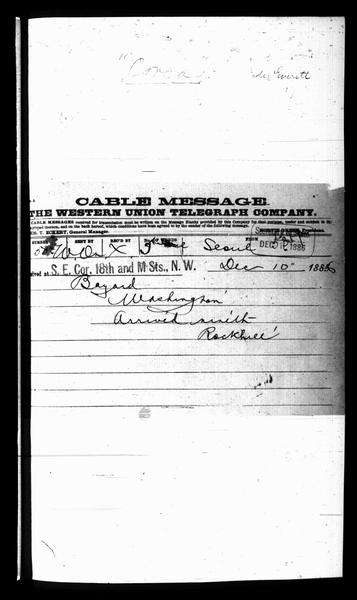 "Corea"
Everett
CABLE MESSAGE.
THE WESTERN UNION TELEGRAPH COMPANY.
CABLE MESSAGES received for transmission must be written on the Message Blanks provided by this Company for that purpose, under and subject to the
printed thereon, and on the back hereof, which conditions have been agreed to by the sender of the following message.
T. ECKERT, General Manager.
NUMBER SENT BY REC'D BY FROM
X Seoul DEC 1886
S. E. Cor. 18th and M Sts., N. W. Dec 10" 1886
Bayard
Washington
Arrived ninth
Rockhill